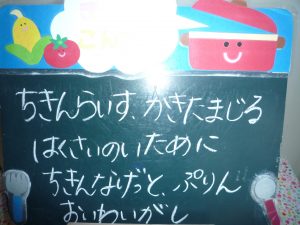 ちきんらいす、かきたまじる
はくさいのいために
ちきんなげっと、ぷりん
おいわいがし